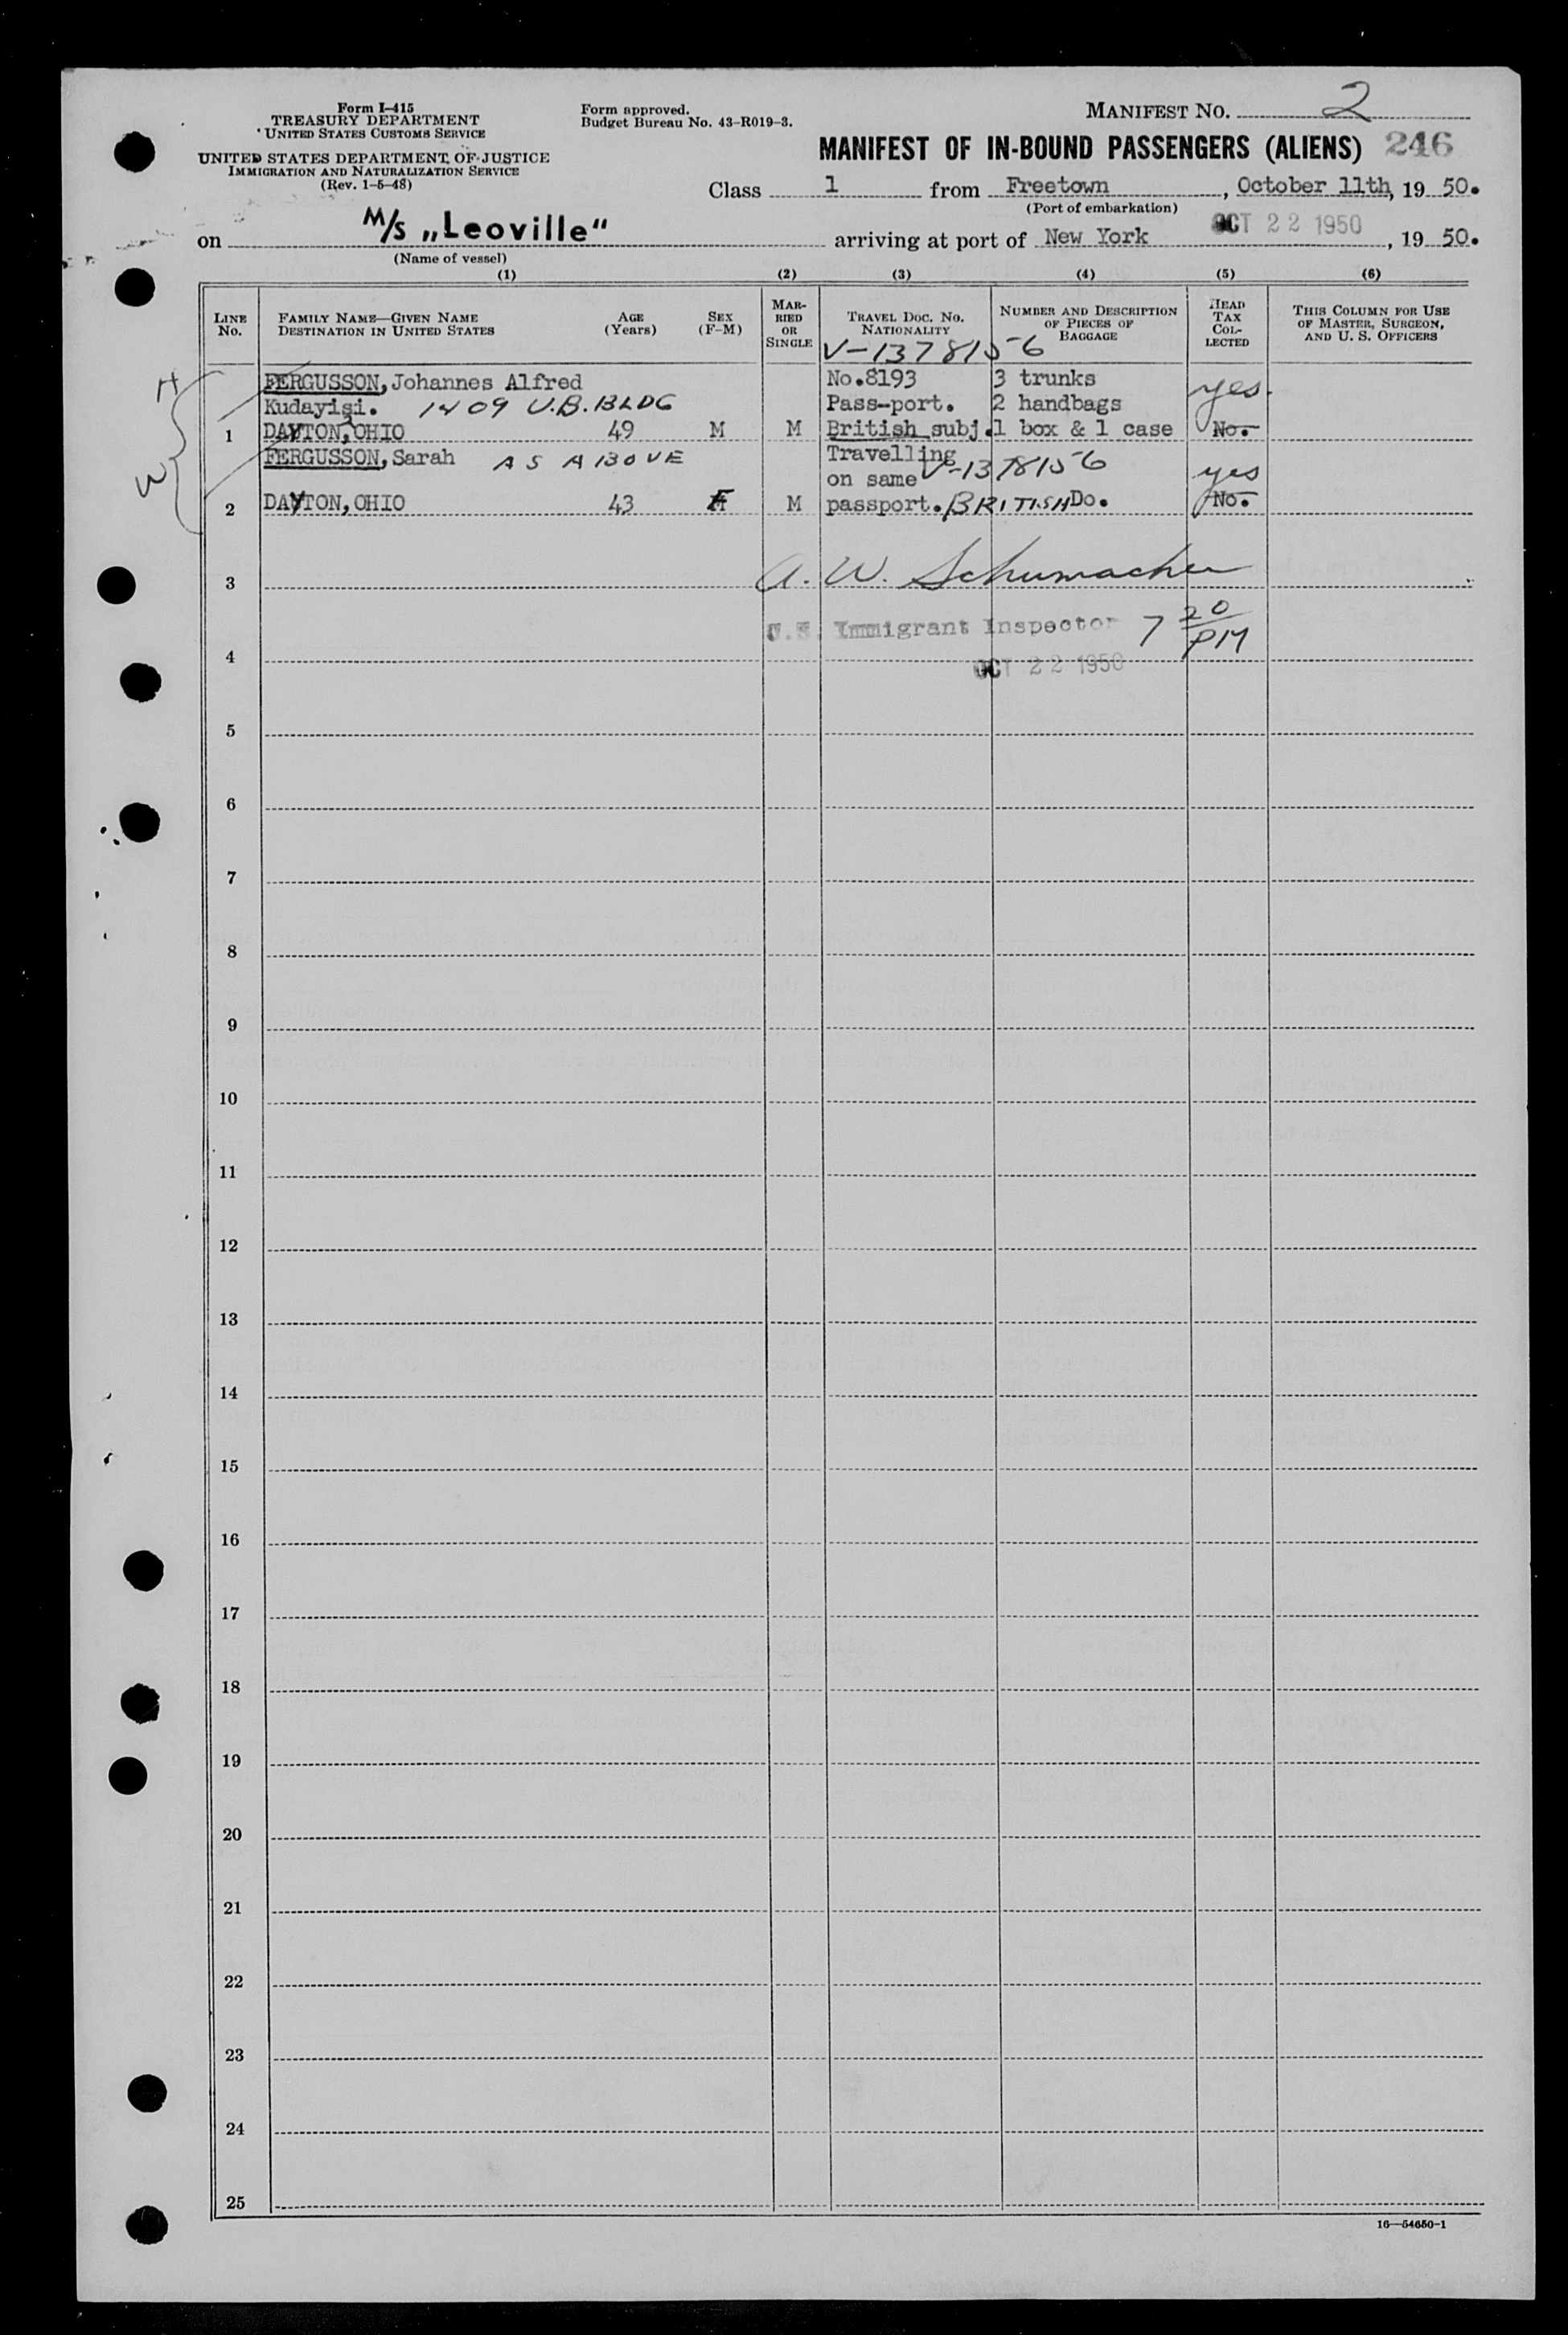 Form I-415
TREASURY DEPARTMENT
UNITED STATES CUSTOMS SERVICE
UNITED STATES DEPARTMENT OF JUSTICE
IMMIGRATION AND NATURALIZATION SERVICE
(Rev. 1-5-48)
Form approved.
Budget Bureau No. 43-R019-3.
MANIFEST No. 2
MANIFEST OF IN-BOUND PASSENGERS (ALIENS) 246
Class 1 from Freetown, October 11th, 19 50.
(Port of embarkation)
on M/S „Leoville" arriving at port of New York OCT 22 1950, 19 50.
(Name of vessel)
(1) (2) (3) (4) (5) (6)
LINE No.
FAMILY NAME—GIVEN NAME
DESTINATION IN UNITED STATES
AGE (Years)
SEX (F-M)
MARRIED OR SINGLE
TRAVEL DOC. NO. NATIONALITY
NUMBER AND DESCRIPTION OF PIECES OF BAGGAGE
HEAD TAX COLLECTED
THIS COLUMN FOR USE OF MASTER, SURGEON, AND U. S. OFFICERS
V-1378156
H
FERGUSSON, Johannes Alfred No.8193 3 trunks yes.
Kudayisi. 1409 U.B. BLDG Pass-port. 2 handbags
1 DAYTON, OHIO 49 M M British subj. 1 box & 1 case No.
W
FERGUSSON, Sarah AS ABOVE Travelling
on same V-1378156 yes
2 DAYTON, OHIO 43 F M passport. BRITISH Do. No.
3 A. W. Schumacher
U.S. Immigrant Inspector 7 20/PM
4
OCT 22 1950
5
6
7
8
9
10
11
12
13
14
15
16
17
18
19
20
21
22
23
24
25
16—54650-1